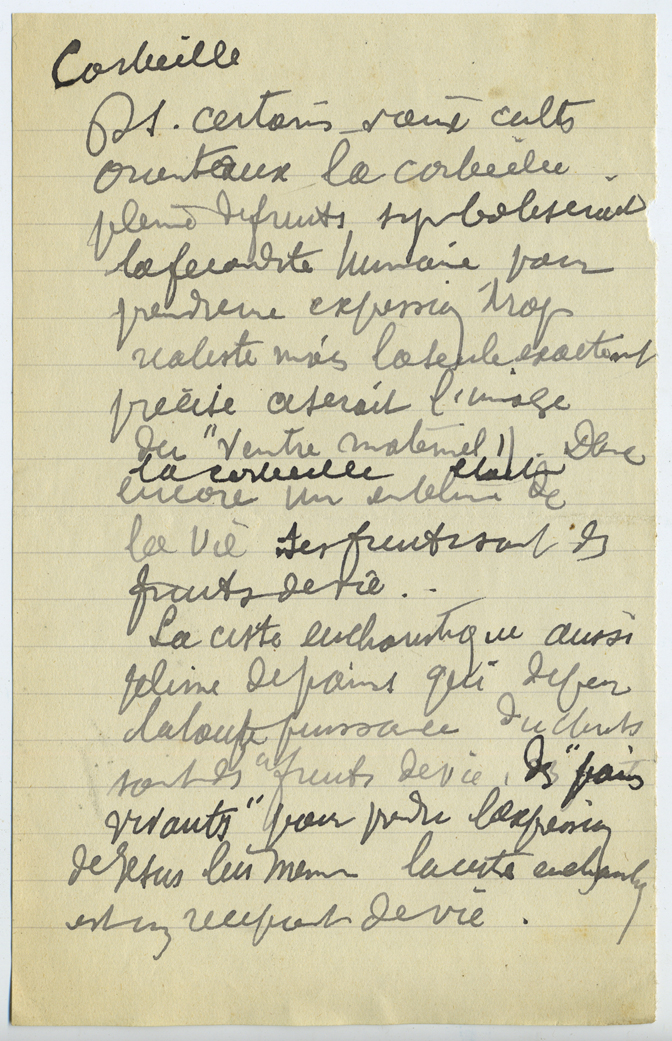 Corbeille
Ds. certains vieux cultes
orientaux la corbeille
pleine de fruits symboliserait
la fécondité humaine pour
prendre une expression trop
réaliste mais la seule exactement
précise ce serait l'image
du "Ventre maternel"). Donc
la corbeille était
encore un emblème de
la Vie Ses fruits sont des
fruits de vie ..
La ciste eucharistique aussi
pleine de pains qui
la toute puissance du Christ
sont des "fruits de vie, des "pains
vivants" pour prendre l'expression
de Jésus lui même la ciste eucharistique
est un récipient de vie .